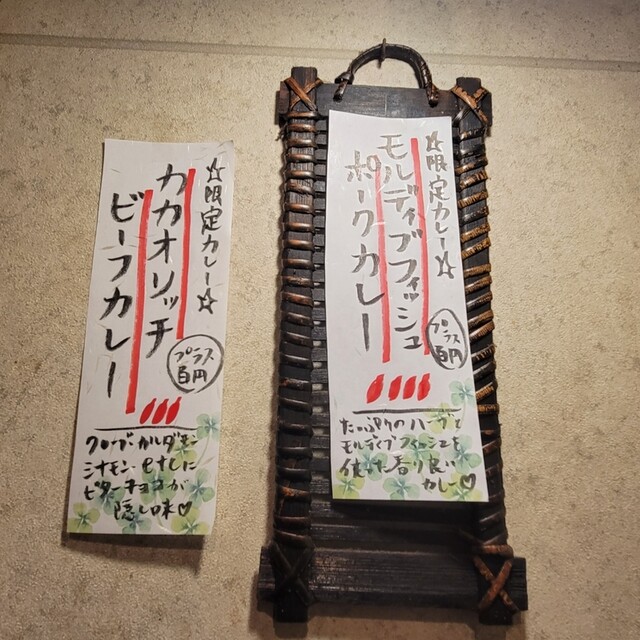 ☆限定カレー☆
モルディブフィッシュ
ポークカレー
プラス
百円
たっぷりのハーブと
モルディブフィッシュを
使った香り良い
カレー♡
☆限定カレー☆
カカオリッチ
ビーフカレー
プラス
百円
クローブ・カルダモン
シナモン・
ビターチョコが
隠し味♡